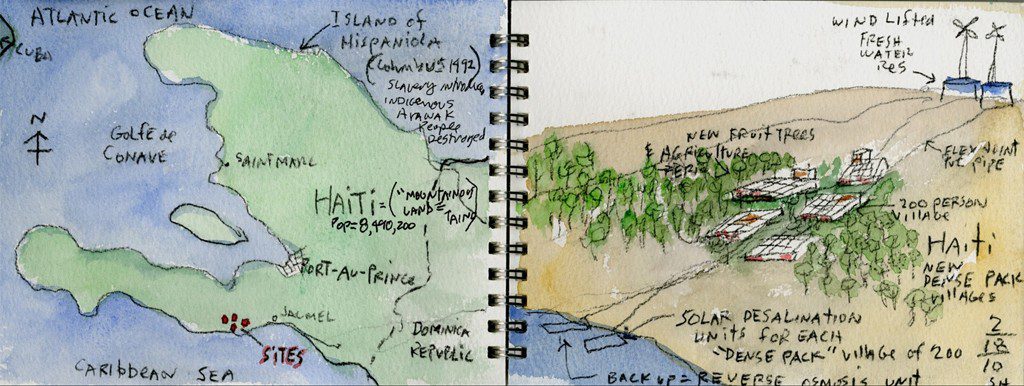 ATLANTIC OCEAN
CUBA
ISLAND of
HISPANIOLA
(Columbus 1492)
Slavery introduced
INDIGENOUS
ARAWAK
PEOPLE
DESTROYED
N
GOLFE de
CONAVE
SAINT MARC
HAITI = ("MOUNTAINOUS
LAND" =
TAINO)
POP = 8,490,200
PORT-AU-PRINCE
JACMEL
SITES
DOMINICA
REPUBLIC
CARIBBEAN SEA
WIND LIFTED
FRESH
WATER
RES
NEW FRUIT TREES
& AGRICULTURE
FLEX JOINT
PVC PIPE
200 PERSON
VILLAGE
HAITI
NEW
DENSE PACK
VILLAGES
SOLAR DESALINATION
UNITS FOR EACH
"DENSE PACK" VILLAGE OF 200
BACK UP = REVERSE OSMOSIS UNIT
2
18
10